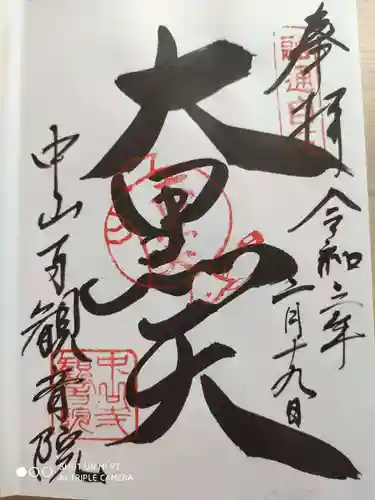 奉拝
令和二年
二月十九日
大黒天
中山寺観音院
SHOT ON MI 9T
AI TRIPLE CAMERA